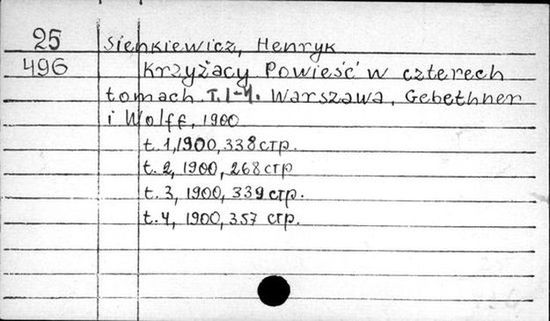 25 Sienkiewicz, Henryk
496 Krzyżacy Powieść w czterech
tomach. T. I-4. Warszawa, Gebethner
i Wolff, 1900
t. 1, 1900, 338 стр.
t. 2, 1900, 268 стр
t. 3, 1900, 339 стр.
t. 4, 1900, 357 стр.